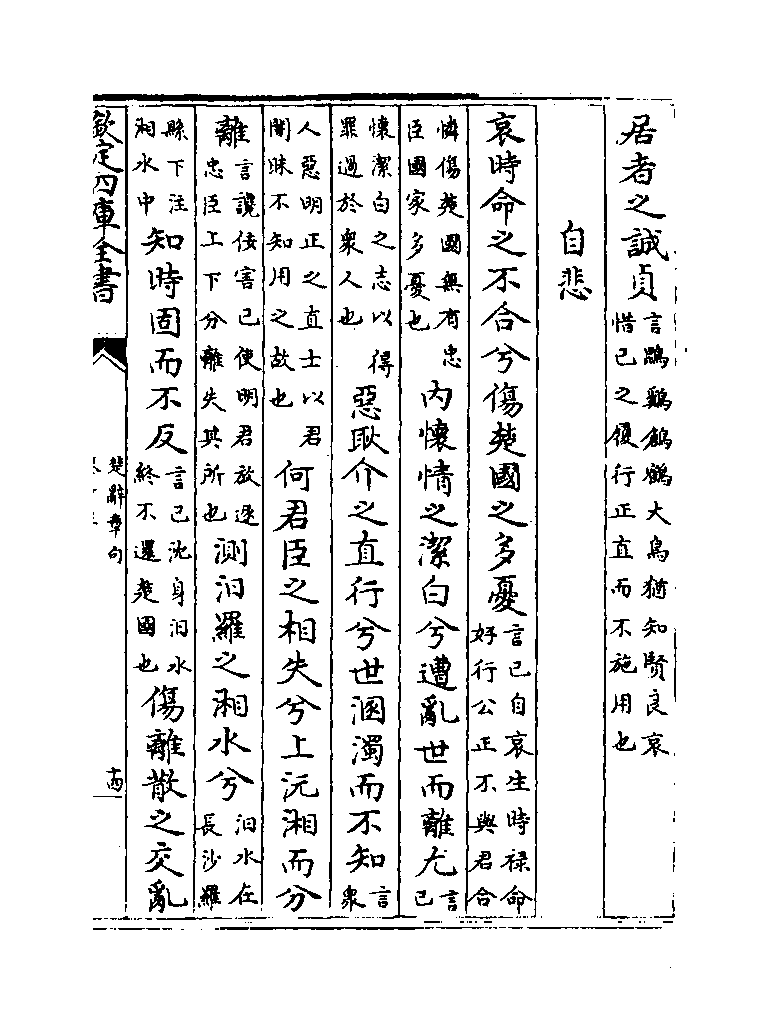 居者之誠貞言鵾鷄鶬鶴大鳥猶知賢良哀惜已之履行正直而不施用也
自悲
哀時命之不合兮傷楚國之多憂言已自哀生時祿命好行公正不與君合
憐傷楚國無有忠臣國家多憂也内懷情之潔白兮遭亂世而離尤言已
懷潔白之志以得罪過於衆人也惡耿介之直行兮世溷濁而不知言衆
人惡明正之直士以君闇昧不知用之故也何君臣之相失兮上沅湘而分
離言讒佞害已使明君放逐忠臣上下分離失其所也測汨羅之湘水兮汨水在長沙羅
縣下注湘水中知時固而不反言已沈身汨水終不還楚國也傷離散之交亂
欽定四庫全書
楚辭章句
十四